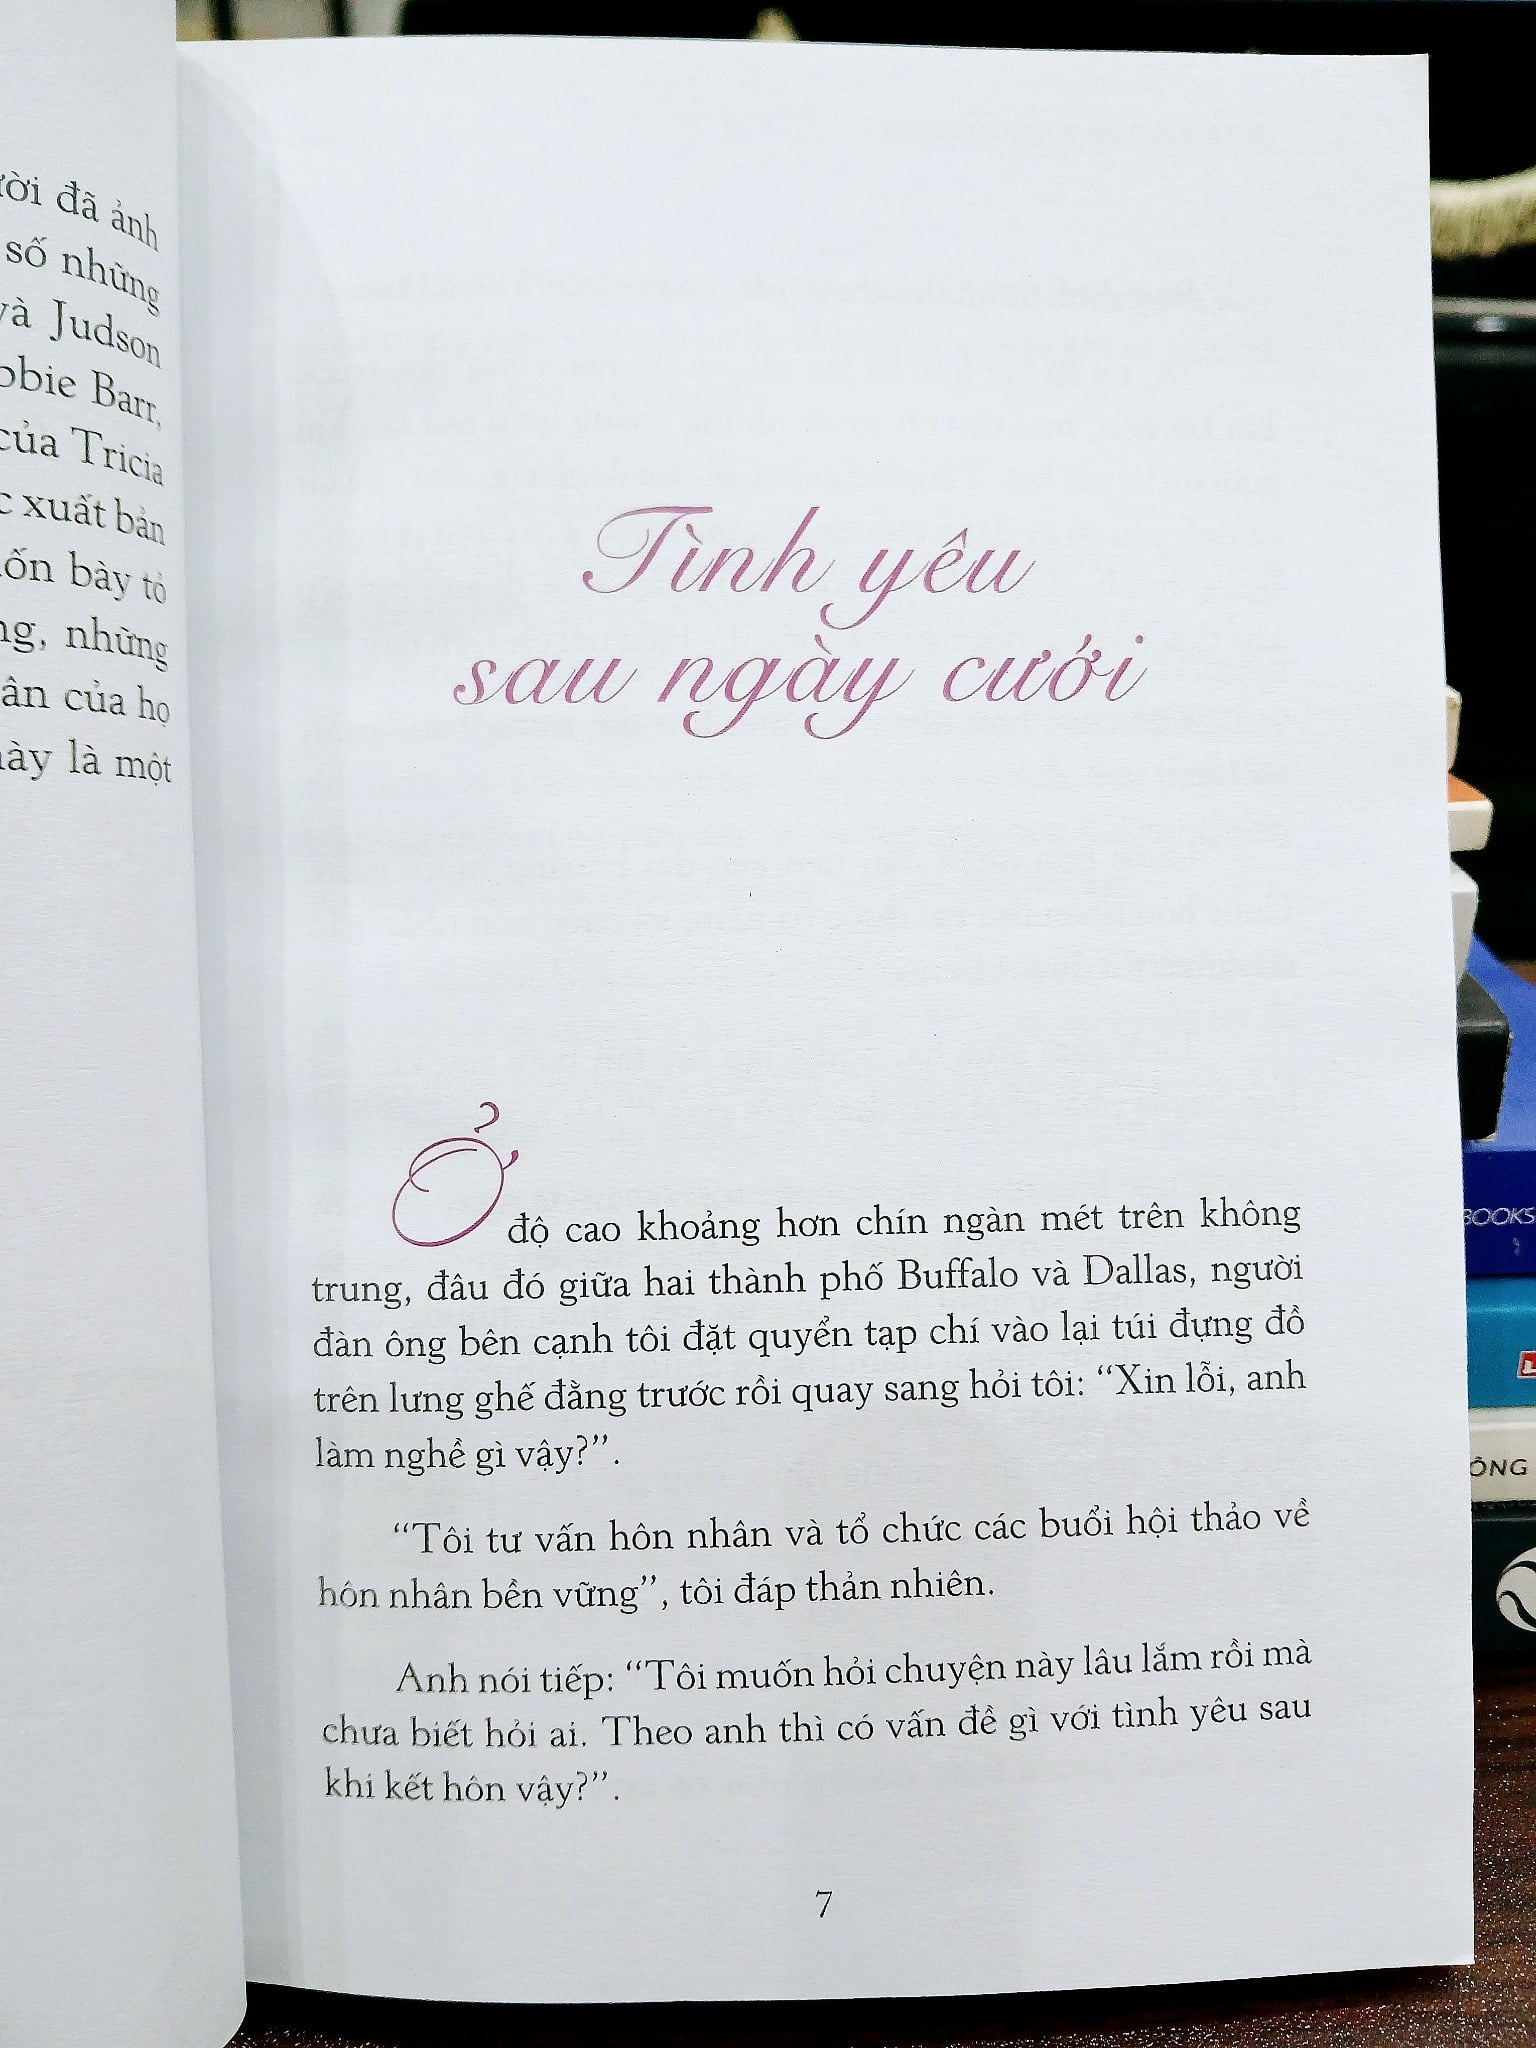 đã ảnh
số những
Judson
Barr,
của Tricia
xuất bản
bày tỏ
những
của họ
là một
Tình yêu
sau ngày cưới
Ở độ cao khoảng hơn chín ngàn mét trên không
trung, đâu đó giữa hai thành phố Buffalo và Dallas, người
đàn ông bên cạnh tôi đặt quyển tạp chí vào lại túi đựng đồ
trên lưng ghế đằng trước rồi quay sang hỏi tôi: “Xin lỗi, anh
làm nghề gì vậy?”.
“Tôi tư vấn hôn nhân và tổ chức các buổi hội thảo về
hôn nhân bền vững”, tôi đáp thản nhiên.
Anh nói tiếp: “Tôi muốn hỏi chuyện này lâu lắm rồi mà
chưa biết hỏi ai. Theo anh thì có vấn đề gì với tình yêu sau
khi kết hôn vậy?”.
7
BOOKS